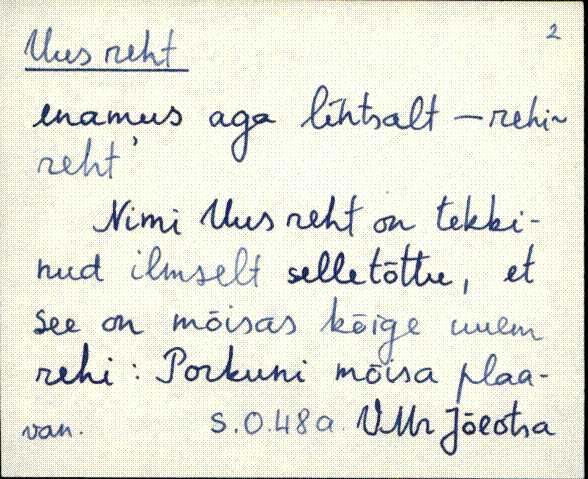 2
Uus reht
enamus aga lihtsalt – rehi~
reht'
Nimi Uus reht on tekki-
nud ilmselt selletõttu, et
see on mõisas kõige uuem
rehi: Porkuni mõisa plaa-
van. S.O.48a VMr Jõeotsa